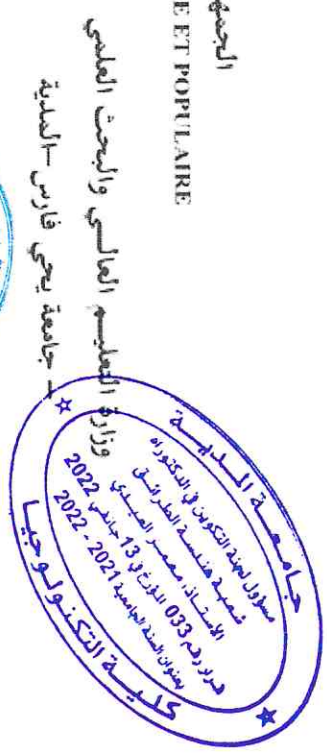 الجمه
E ET POPULAIRE
وزارة التعليم العالي والبحث العلمي
جامعة يحي فارس -المدية
جامعة المدية
مسؤول لجنة التكوين في الدكتوراه
شعبة هندسة الطرائق
الأستاذ: معمر العبيدي
قرار رقم 033 المؤرخ في 13 جانفي 2022
بعنوان السنة الجامعية 2021 - 2022
كلية التكنولوجيا